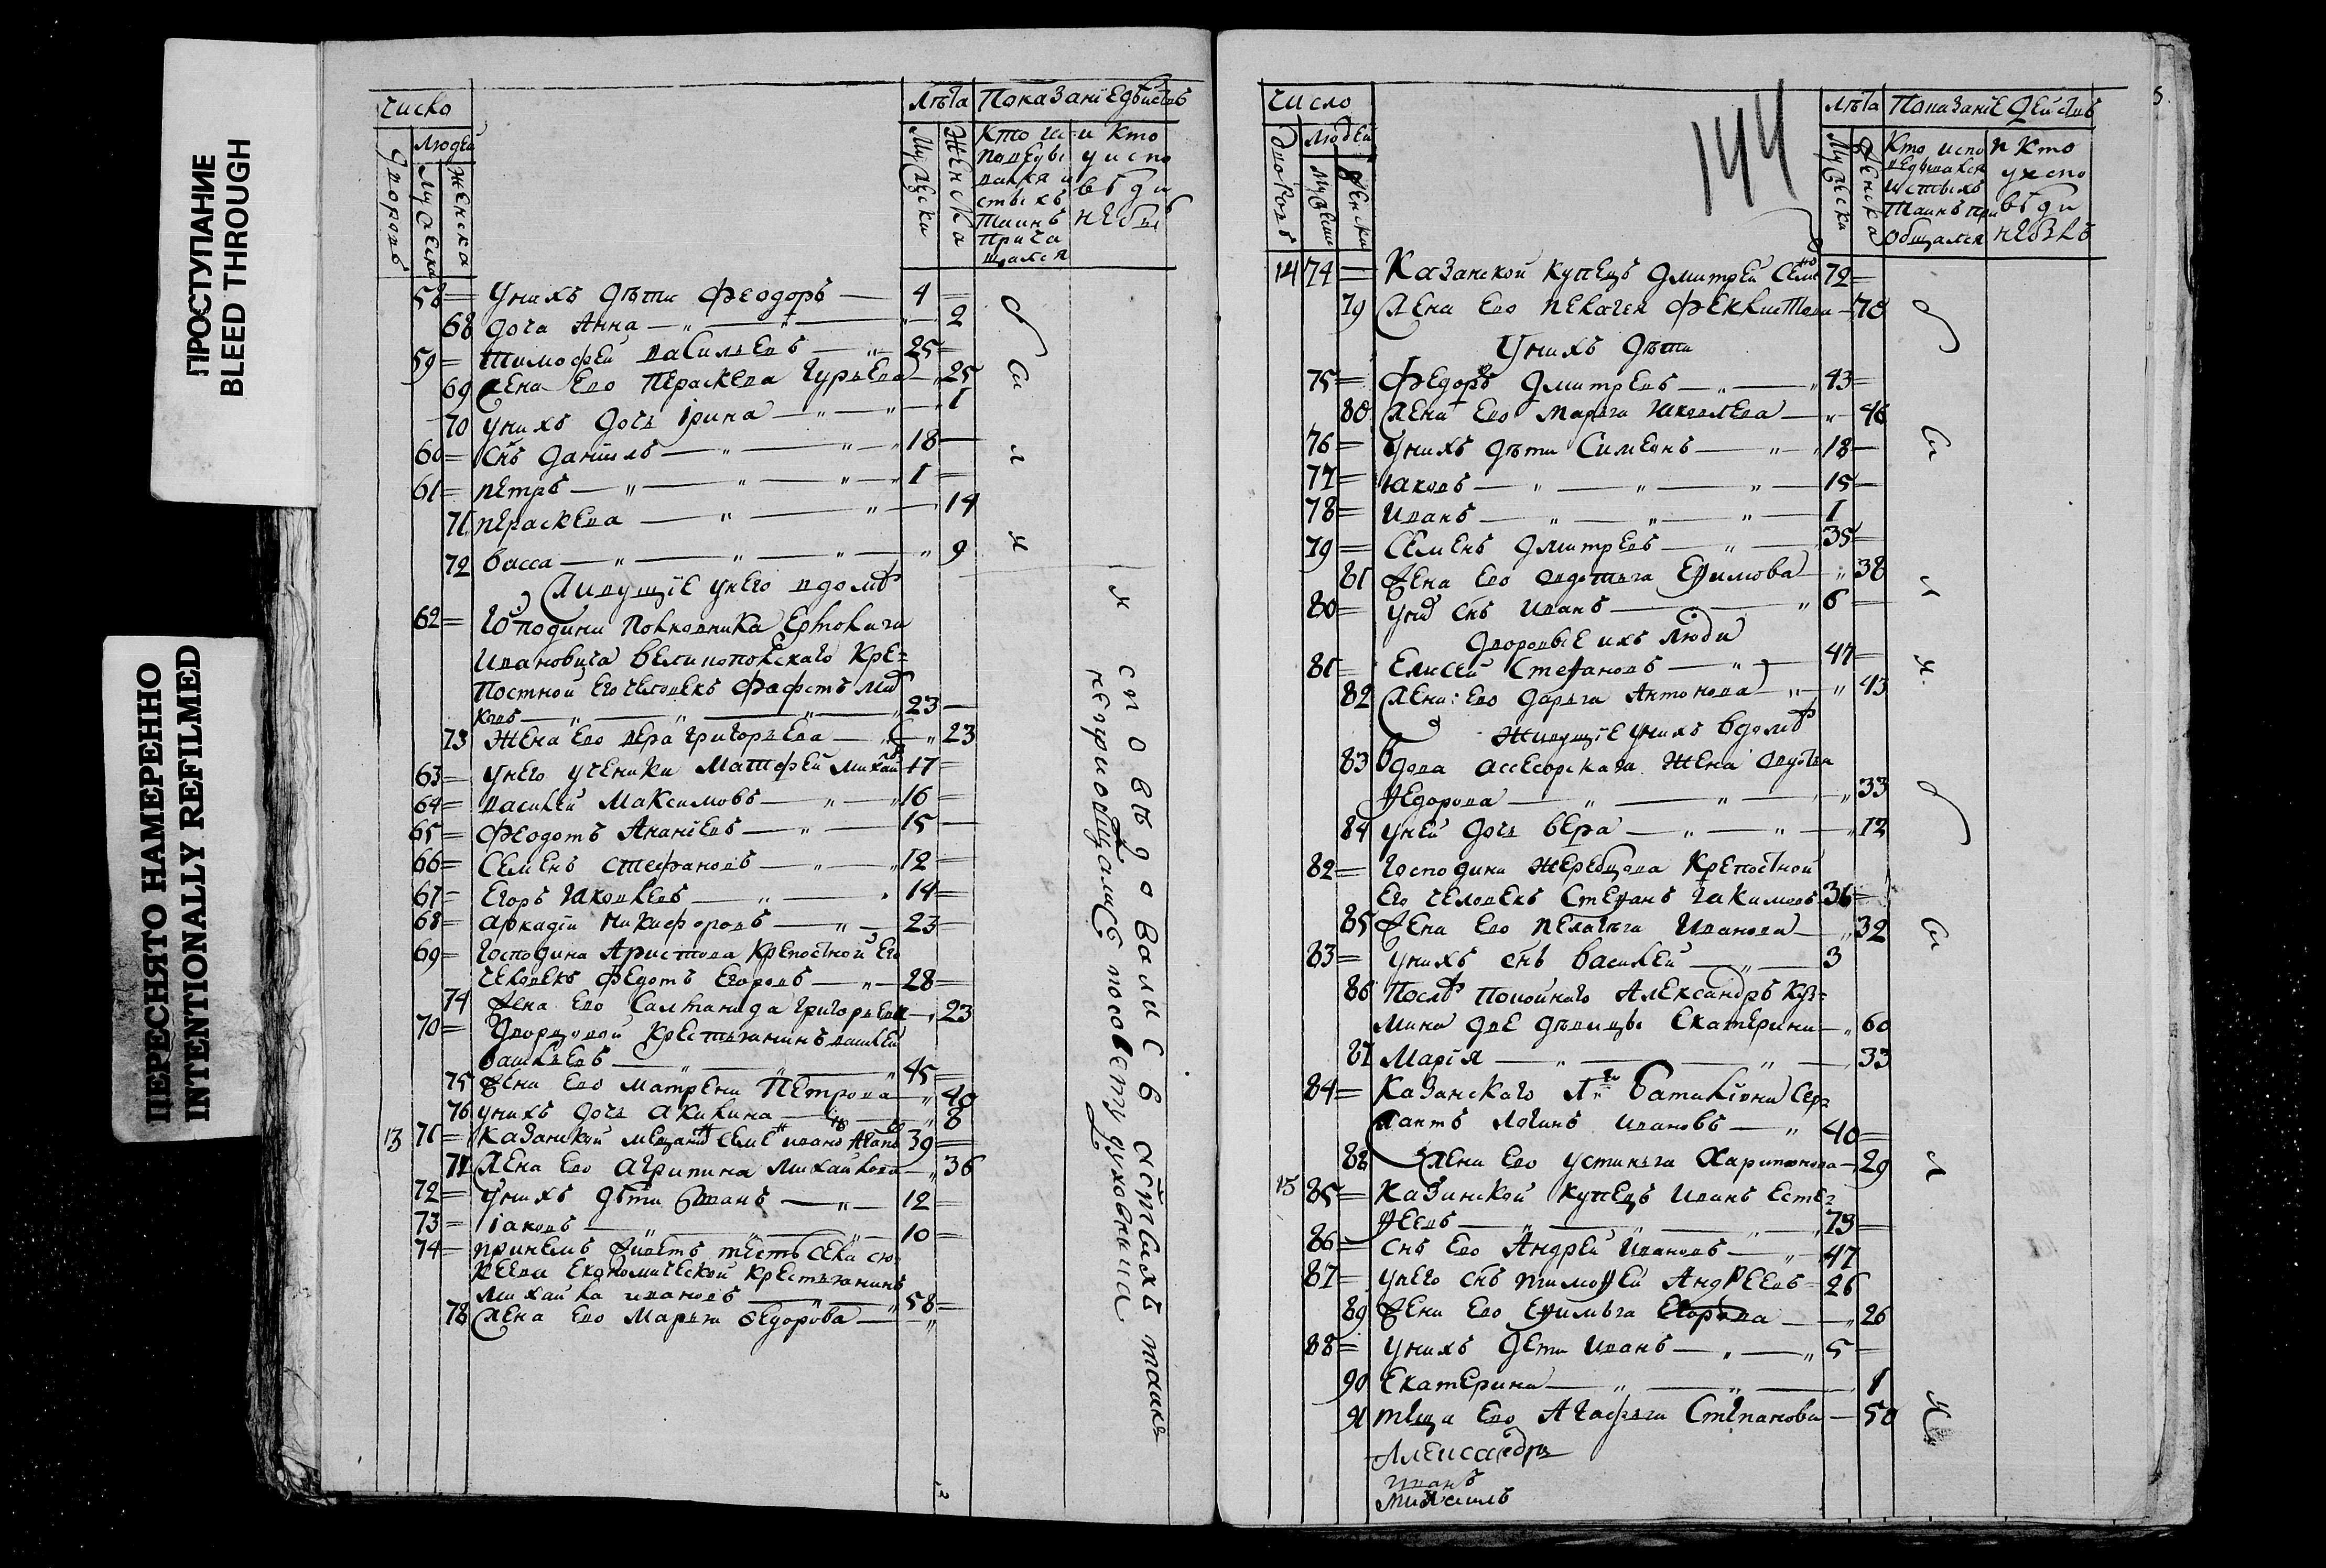 ПРОСТУПАНИЕ
BLEED THROUGH
ПЕРЕСНЯТО НАМЕРЕННО
INTENTIONALLY REFILMED
число
людей
дворовъ
мужеска
женска
лѣта
мужески
женска
Кто ис-
поведы
вался и
стыхъ
таинъ
прича
щался
и кто
у испо
вѣди
небы
58 = у нихъ дѣти Феодоръ — 4 =
68 доча Анна — " — 2
59 = Тимофей Васильевъ — " 25 =
69 жена Ево Параскева Гурьева — " 25
70 у нихъ дочь Ірина — " — 1
60 = Снъ Даніилъ — " — 18 —
61 = петръ — " — " — 1 =
71 пераскева — " — " — 14
72 Васса — " — " — " 9
живущіе у него в домѣ
62 = Господина Полковника
Ивановича Великопольскаго Кре=
постной Его человекъ
— " — 23 —
73 жена Ево Вера Григорьева — " 23
63 = у него ученики Матфей 17 =
64 = Василей Максимовъ — " — 16 =
65 = Феодотъ Ананіевъ — " — 15 —
66 = Семенъ Стефановъ — " 12 =
67 = Егоръ Иаковлевъ — " — 14 =
68 = Аркадій Никифоровъ — " — 23 —
69 = Господина Аристова Крепостной Его
человекъ Федотъ Егоровъ — " — 28 =
74 жена Ево Салтанида Григорьева — " 23
70 = Дворцовой Крестьянинъ Василей
Васильевъ — " — " 45 =
75 жена Ево Матрена Петрова — " 40
76 у нихъ дочь Акилина — " 8
13 71 = Казанской 39 =
77 жена Ево Агрипина Михайлова — " 36
72 = у нихъ дѣти — " — 12 =
73 = Іаковъ — " — 10 =
74 = при немъ живетъ тесть села
Економической крестьянинъ
Михайла Ивановъ — " 58 =
78 жена Ево Марья Федорова — "
исповѣдовались и стыхъ таинъ
непріобщались посовету духовныиа
144
число
дворовъ
людей
мужески
женски
лѣта
мужески
женска
Кто испо
ведывался
и стыхъ
Таинъ при
общался
и кто
у испо
вѣди
небылъ
14 74 = Казанской Купецъ Дмитрей 72 =
79 жена Ево Пелагея Феклистова — 70
у нихъ дѣти
75 = Федоръ Дмитревъ — " — " 43 =
80 жена Ево Марья Иаковлева — " 46
76 = у нихъ дѣти Симеонъ — " — 18 —
77 = Иаковъ — " — " — " 15 —
78 = Иванъ — " — " — " 1
79 = Семенъ Дмитревъ — " — 35 =
81 жена Ево Авдотья Ефимова — " 38
80 = у нихъ снъ Иванъ — " 6 =
Дворовые ихъ люди
81 = Елисей Стефановъ — " — 47 =
82 жена: Ево Дарья Антонова — " — " 43
живущіе у нихъ в домѣ
83 Вдова асесорская жена Авдотья
Федорова — " — " — " 33
84 у ней дочь Вера — " — " — " 12
82 = Господина Жеребцова Крепостной
Его человекъ Стефанъ Иакимовъ 36 =
85 жена Ево Пелагья Иванова — " 32
83 = у нихъ снъ Василей — " — 3
86 Послѣ Покойнаго Александръ Куз=
мина две дѣвицы Екатерина — " 60
87 Марія — " — " — 33
84 = Казанскаго Баталіона Сер=
жантъ Логинъ Ивановъ — " 40 =
88 жена Ево Устинья Харитонова — " 29
15 85 = Казанской Купецъ Иванъ Есте=
феевъ — " — " — " 73 =
86 = снъ Ево Андрей Ивановъ — " 47
87 = у него снъ Тимофей Андреевъ = 26
89 жена Ево Ефимья Егорова — " 26
88 = у нихъ дети Иванъ — " — " 5 —
90 Екатерина — " — " — 1
91 теща Ево Агафья Степанова — 50
Александра
Иванъ
Михаилъ